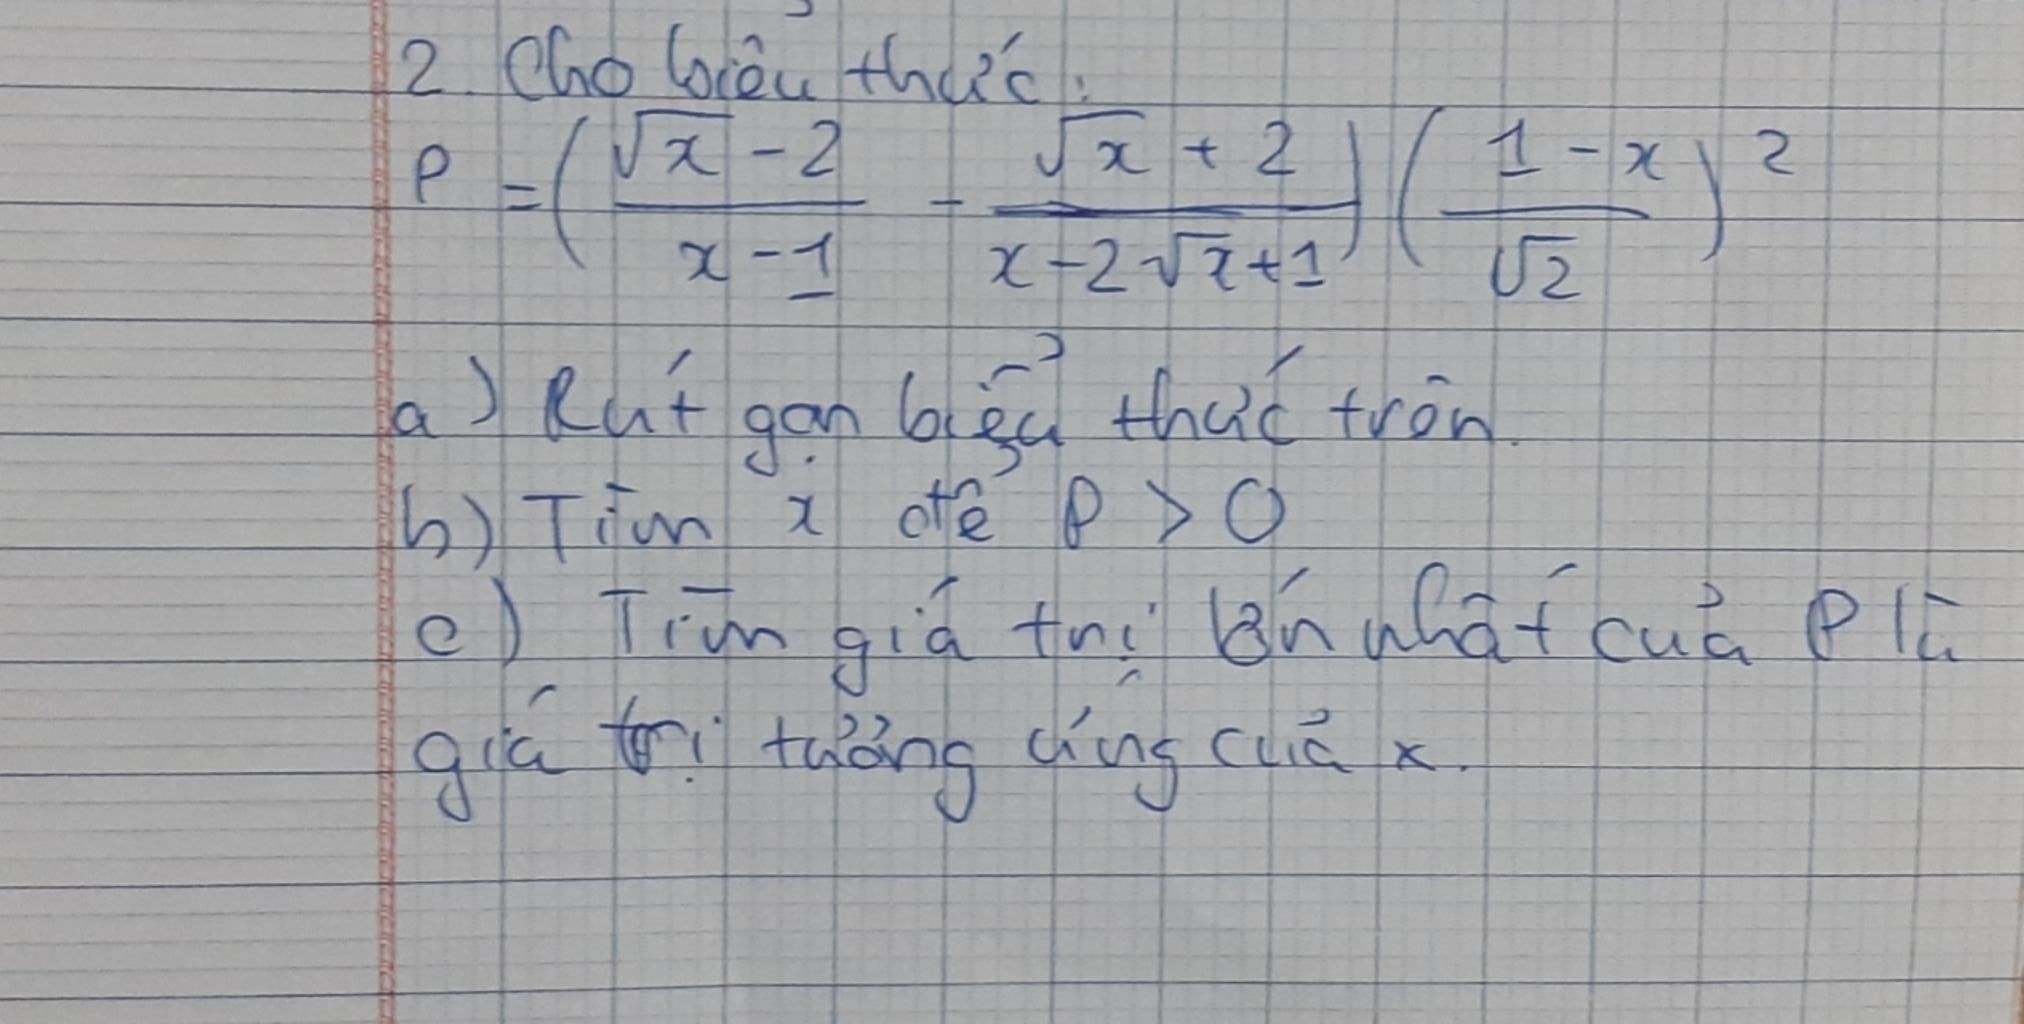 2. Cho biểu thức:
P = ( (√x - 2)/(x - 1) - (√x + 2)/(x - 2√x + 1) ) ( (1 - x)/√2 )²
a) Rút gọn biểu thức trên.
b) Tìm x để P > 0
c) Tìm giá trị lớn nhất của P là
giá trị tưởng ứng của x.